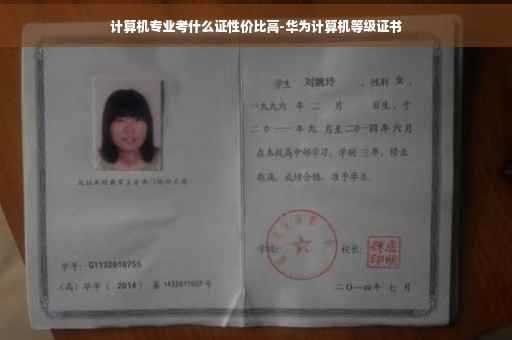 计算机专业考什么证性价比高-华为计算机等级证书
学生 刘婉玲 ，性别 女 ，
一九九六 年 二 月 日生，于
二〇一一年九 月至二〇一四年六月
在本校高中部学习，学制 三年，修业
期满，成绩合格，准予毕业。
学校： 校长：
学号： G1132010755
（高）毕字（ 2014 ）第 1432011027 号
二〇一四年 七 月